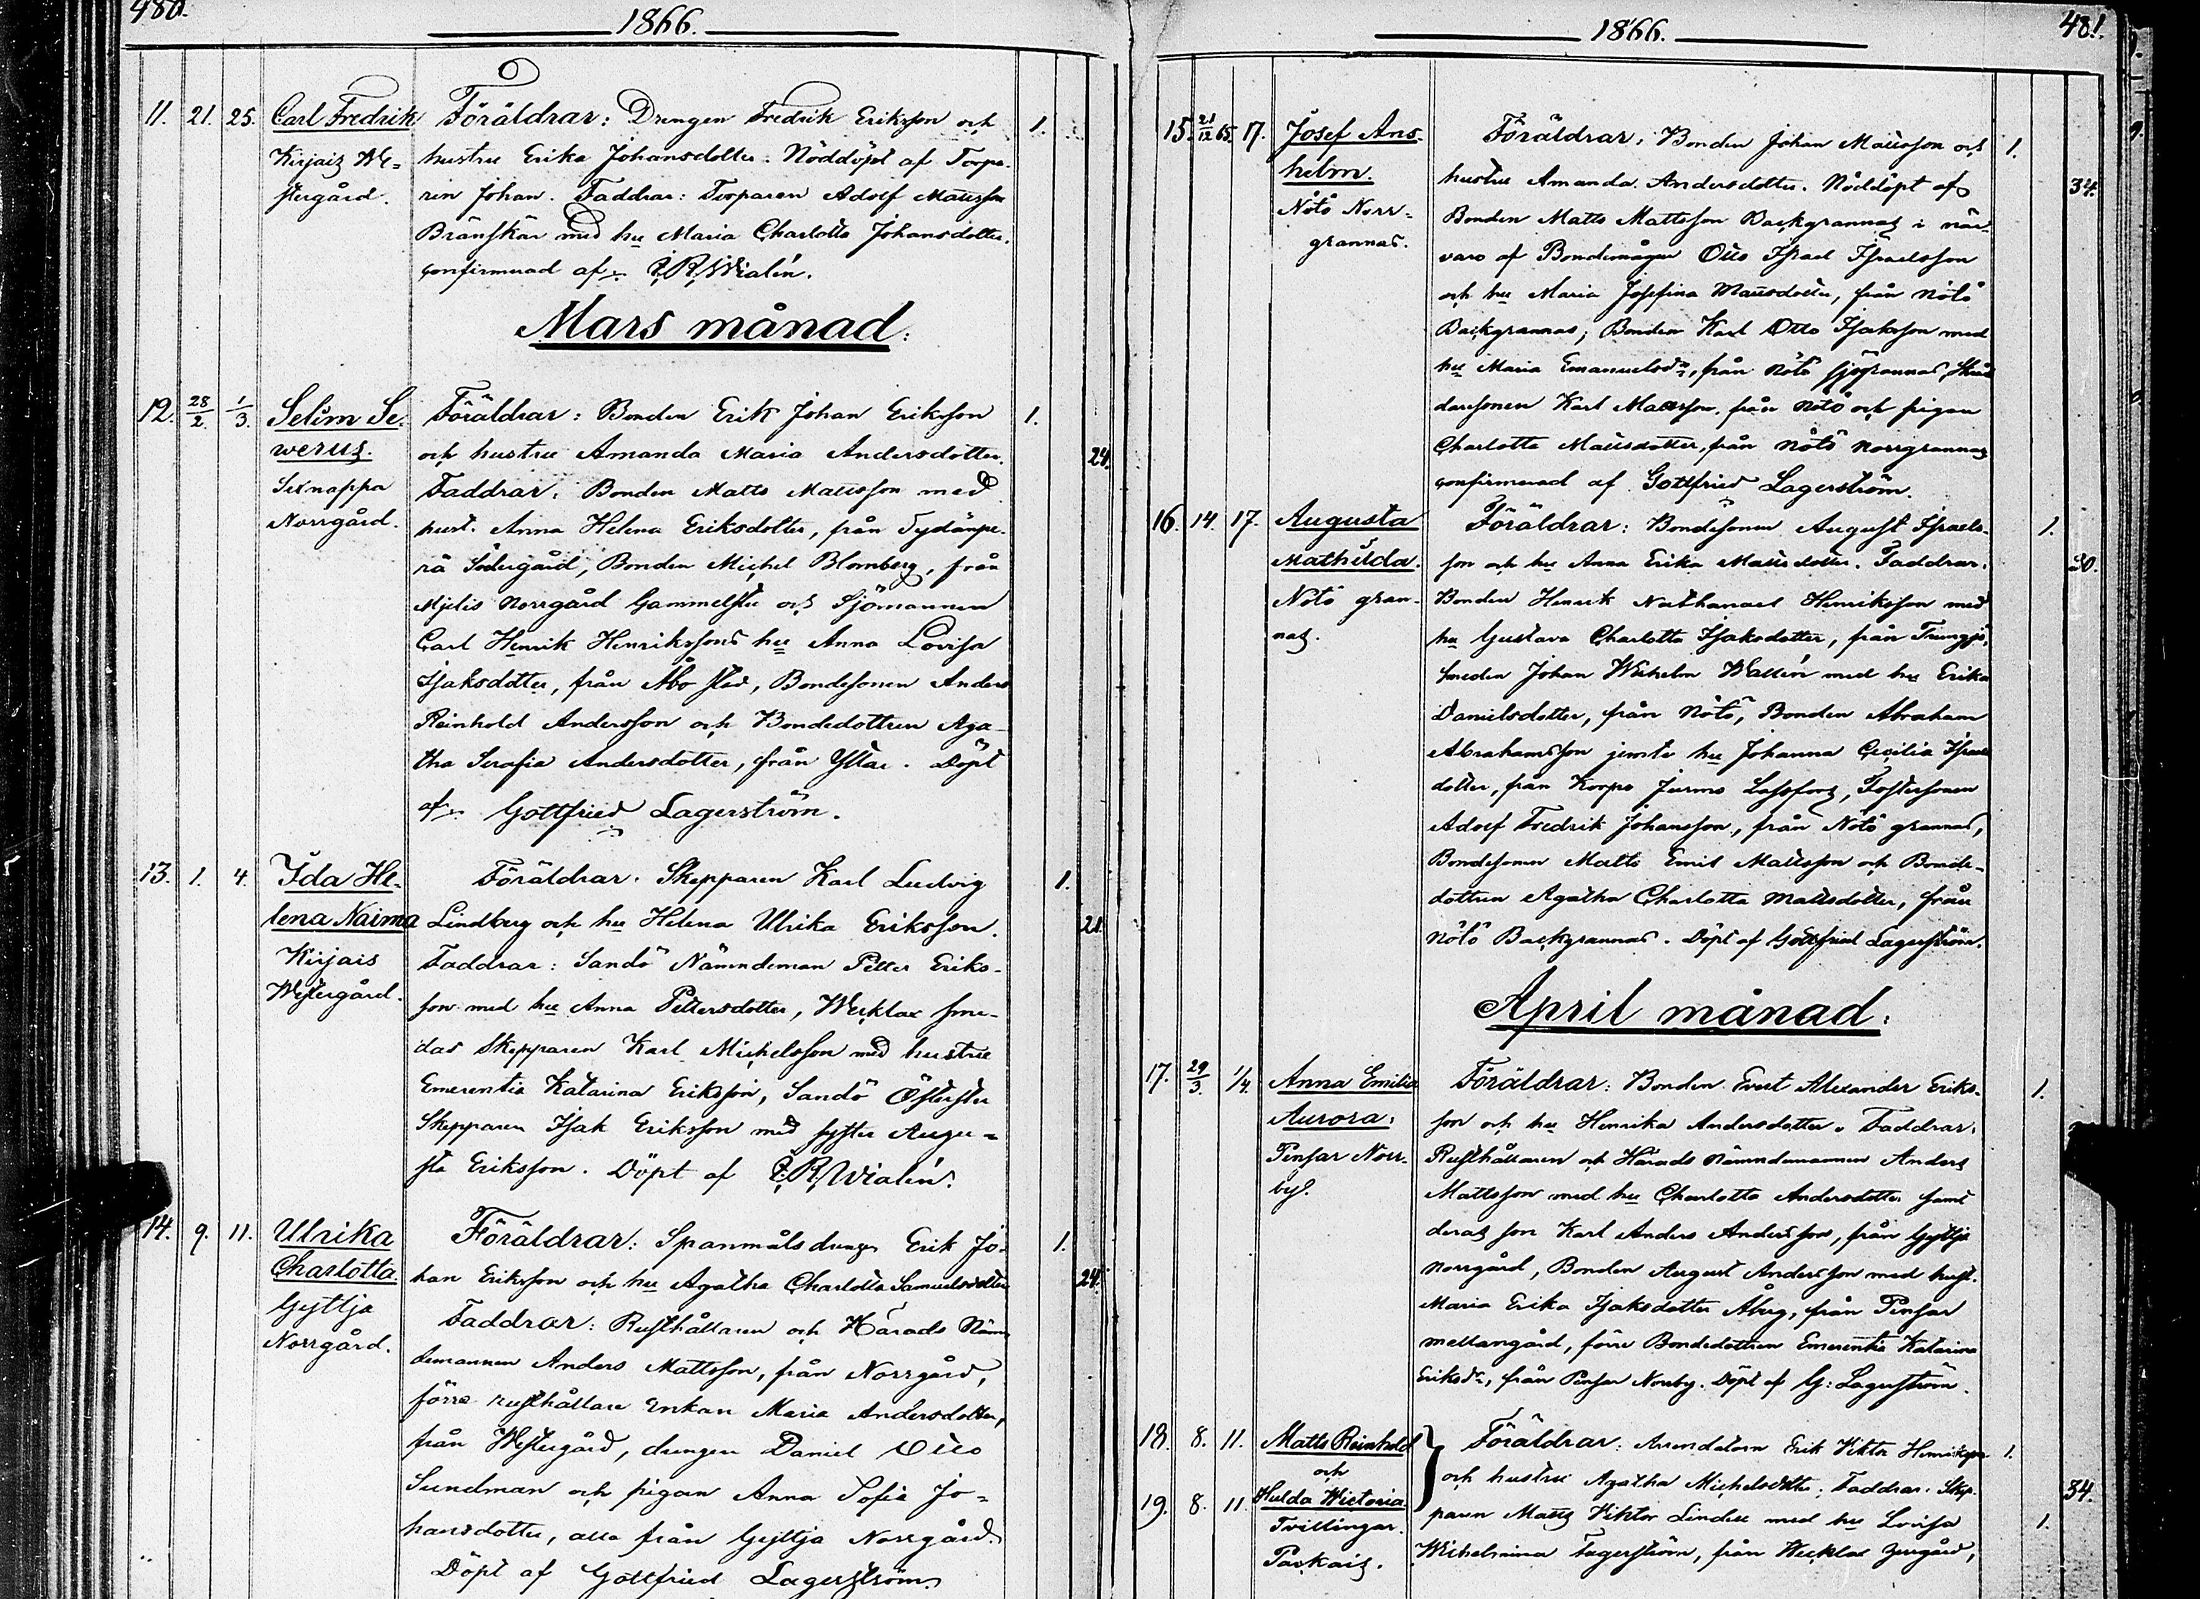 480.
1866.
11. 21. 25. Carl Fredrik Föräldrar: Drengen Fredrik Eriksson och 1.
Kirjais We= hustru Erika Johansdotter. Nöddöpt af Torpa-
stergård. ren Johan. Faddrar: Torparen Adolf Mattsson
Bränskär med hu Maria Charlotta Johansdotter.
confirmerad af
Mars månad:
12. 28/2. 1/3. Selim Se- Föräldrar: Bonden Erik Johan Eriksson 1.
werus. och hustru Amanda Maria Andersdotter. 24.
Faddrar: Bonden Matts Mattsson med
Norrgård. hust. Anna Helena Eriksdotter, från
Södergård, Bonden Michel Blomberg, från
Mjelis Norrgård och Sjömannen
Carl Henrik Henrikssons hu Anna Lovisa
Isaksdotter, från Åbo stad, Bondesonen Anders
Reinhold Andersson och Bondedottren Aga-
tha Serafia Andersdotter, från Yttar. Döpt
af Gottfried Lagerström.
13. 1. 4. Ida He- Föräldrar. Skepparen Karl Ludvig 1.
lena Naima Lindberg och hu Helena Ulrika Eriksson. 21.
Kirjais Faddrar: Sandö Nämndeman Petter Eriks-
Westergård. son med hu Anna Pettersdotter, Wecklax Sme-
das Skepparen Karl Michelsson med hustru
Emerentia Katarina Eriksson, Sandö
Skepparen Isak Eriksson med syster Augu=
sta Eriksson. Döpt af
14. 9. 11. Ulrika Föräldrar: Spanmåls drengen Erik Jo- 1.
Charlotta han Eriksson och hu Agatha Charlotta Samuelsdotter 24.
Gyttja Faddrar: Rusthållaren och Härads Näm
Norrgård. demannen Anders Mattsson, från Norrgård,
förre rusthållare Enkan Maria Andersdotter,
från Westergård, drengen Daniel Otto
Sundman och pigan Anna Sofia Jo=
hansdotter, alla från Gyttja Norrgård.
Döpt af Gottfried Lagerström
1866.
481.
15. 21/12 65. 17. Josef Ans- Föräldrar: Bonden Johan Mattsson och 1.
helm. hustru Amanda Andersdotter. Nöddöpt af 34.
Nötö Norr= Bonden Matts Mattsson Backgrannas i när-
grannas. varo af Bondemågen Otto Israel Israelsson
och hu Maria Josefina Mattsdotter, från Nötö
Backgrannas, Bonden Karl Otto Isaksson med
hu Maria Emanuelsdr, från Nötö Sjögrannas,
Karl Mattsson, från Nötö och pigan
Charlotta Mattsdotter, från Nötö Norrgrannas
confirmerad af Gottfried Lagerström.
16. 14. 17. Augusta Föräldrar: Bondesonen August Israels- 1.
Mathilda. son och hu Anna Erika Mattsdotter. Faddrar: 30.
Nötö gran- Bonden Henrik Nathanael Henriksson med
nas. hu Gustava Charlotta Isaksdotter, från Trungsö,
Smeden Johan Wilhelm Wallén med hu Erika
Danielsdotter, från Nötö, Bonden Abraham
Abrahamsson jemte hu Johanna Cecilia Israels
dotter, från Korpo Jurmo Lassfors, Fostersonen
Adolf Fredrik Johansson, från Nötö grannas,
Bondesonen Matts Emil Mattsson och Bonde-
dottren Agatha Charlotta Mattsdotter, från
Nötö Backgrannas. Döpt af Gottfried Lagerström.
April månad:
17. 29/3. 1/4. Anna Emilia Föräldrar: Bonden Evert Alexander Eriks- 1.
Aurora: son och hu Henrika Andersdotter. Faddrar:
Pensar Norr- Rusthållaren och Härads Nämndemannen Anders
by. Mattsson med hu Charlotta Andersdotter samt
deras son Karl Anders Andersson, från Gyttja
Norrgård, Bonden August Andersson med hust.
Maria Erika Isaksdotter Åberg, från Pensar
mellangård, förre Bondedottren Emerentia Katarina
Eriksdr, från Pensar Norrby. Döpt af G: Lagerström.
18. 8. 11. Matts Reinhold Föräldrar: Arrendatorn Erik Viktor Henriksson 1.
och och hustru Agatha Michelsdotter, Faddrar: Skep- 34.
19. 8. 11. Hulda Wictoria. paren Matts Viktor Lindell med hu Lovisa 1.
Tvillingar. Wilhelmina Fagerström, från Wecklax
Parkais.